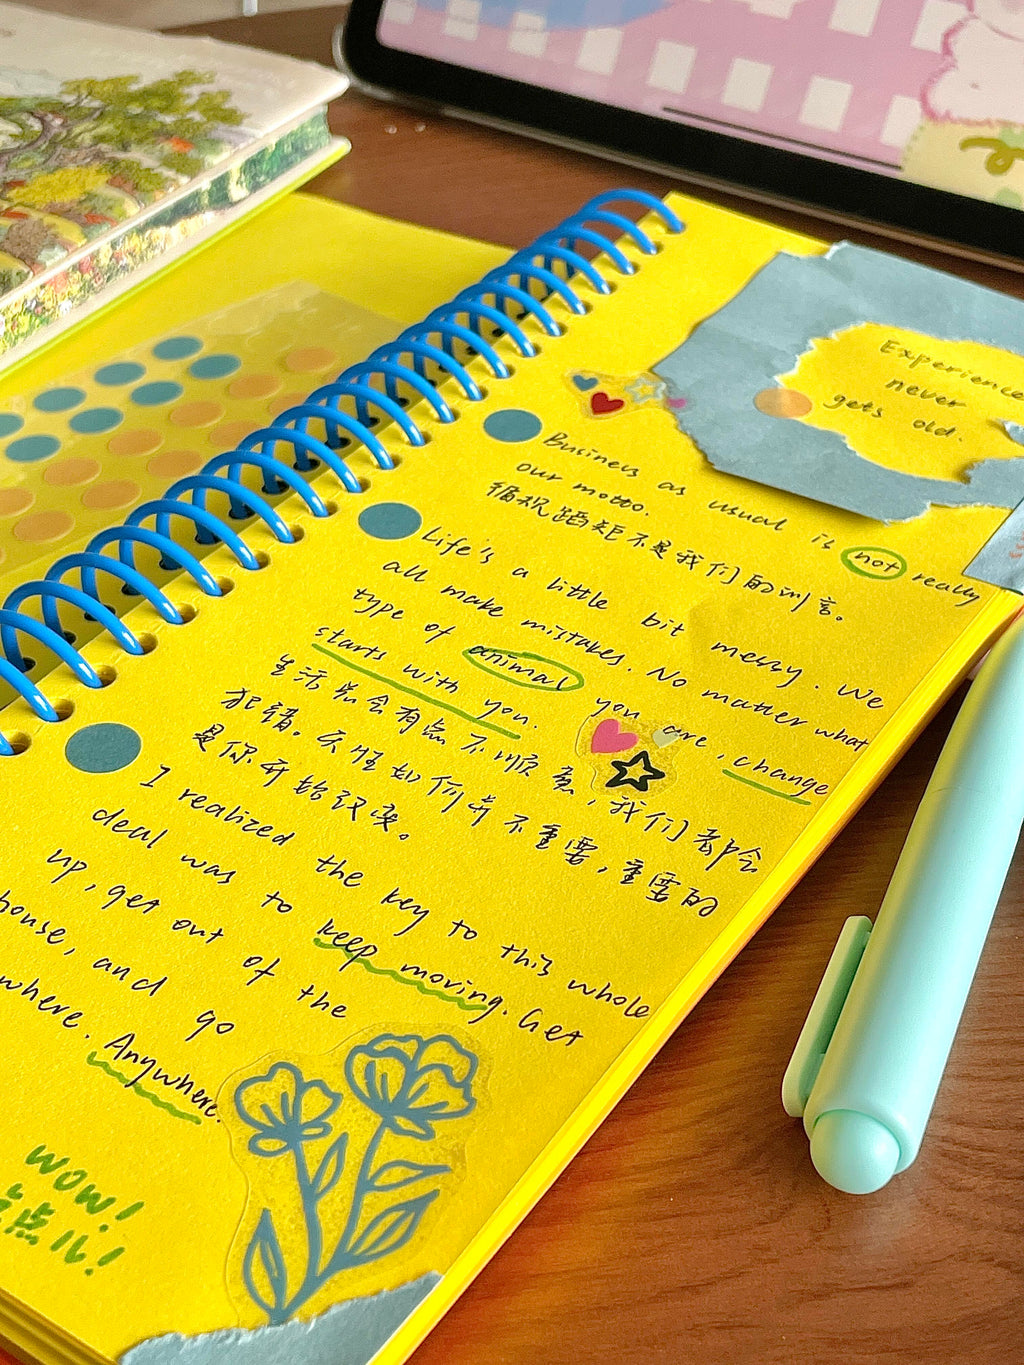 Experience
never
gets old.
Business as usual is not really
our motto.
循规蹈矩不是我们的训言。
Life's a little bit messy. We
all make mistakes. No matter what
type of animal you are, change
starts with you.
生活总会有点不顺意，我们都会
犯错。天性如何并不重要，重要的
是你开始改变。
I realized the key to this whole
deal was to keep moving. Get
up, get out of the
house, and go
where. Anywhere.
WOW!
点儿!